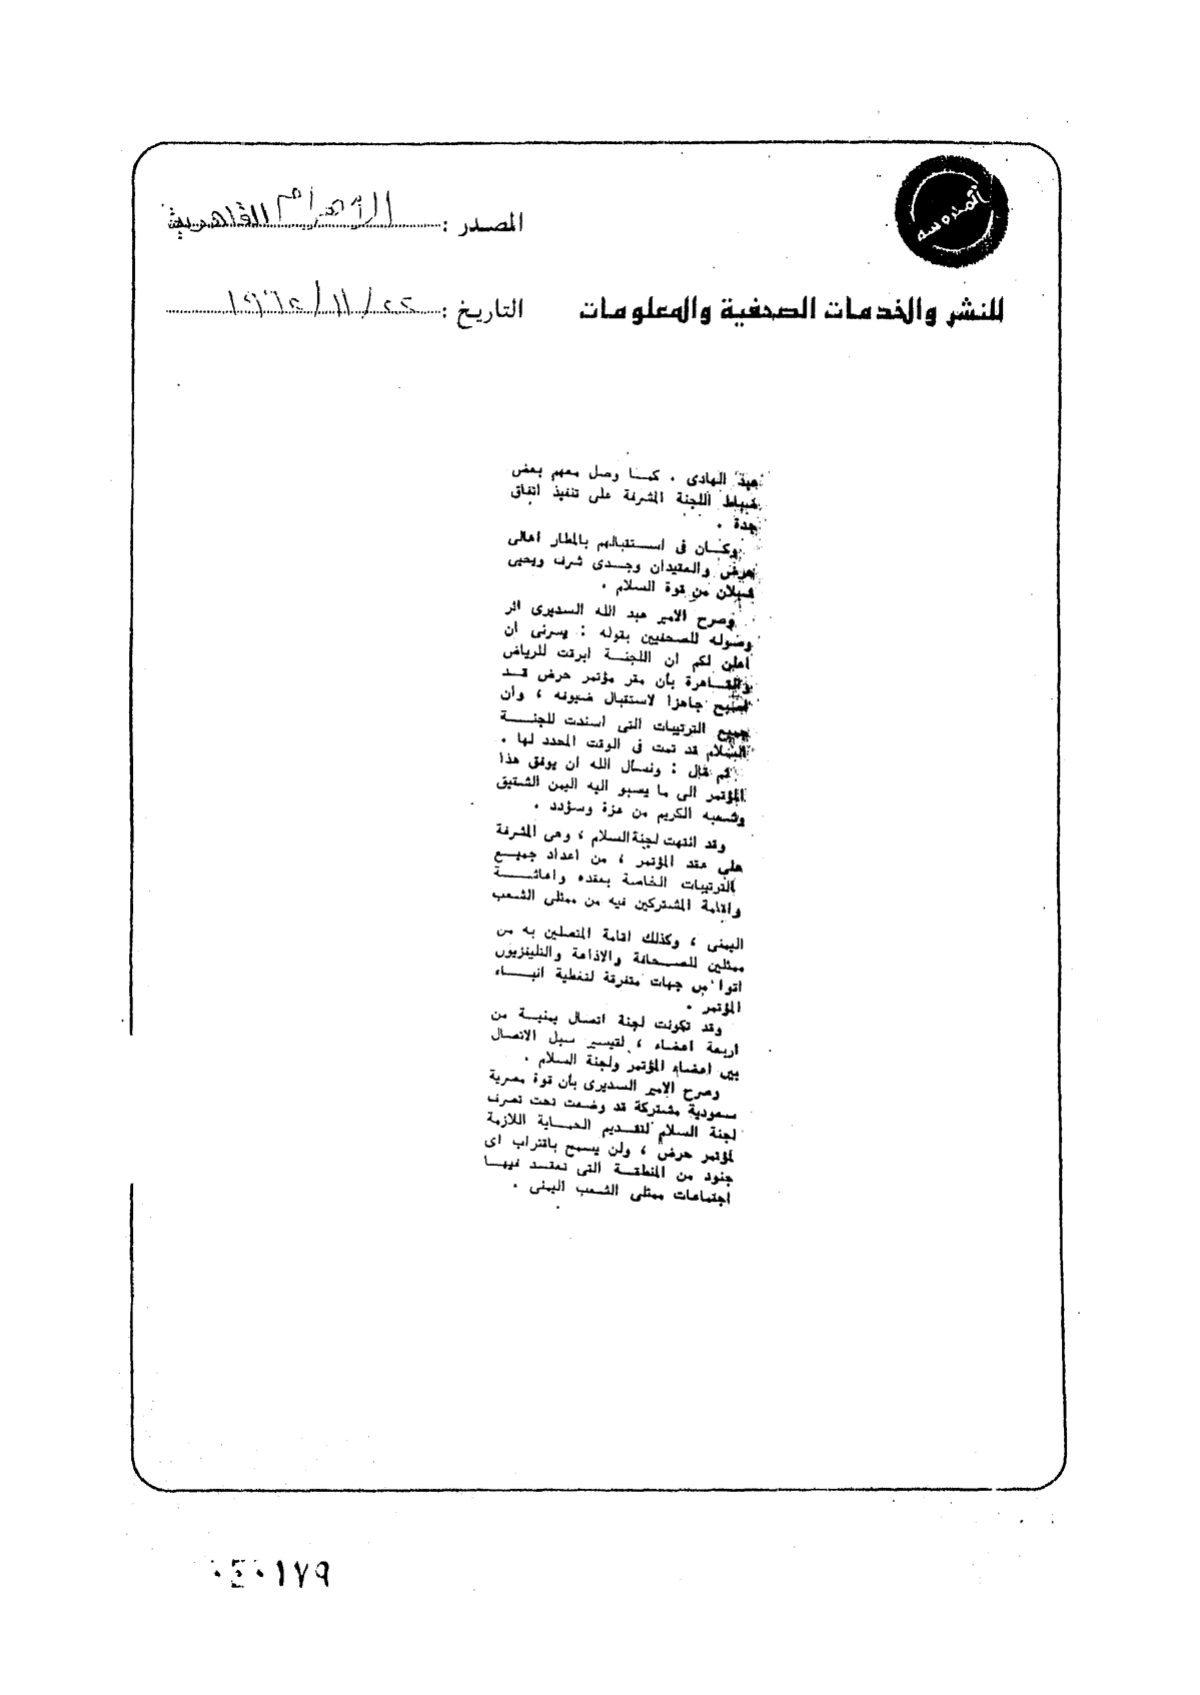 المدوسة
المصدر : الأهرام القاهرية
للنشر والخدمات الصحفية والمعلومات
التاريخ : ٢٢/ ١١/
عبد الهادى . كمـا وصل معهم بعض
ضباط اللجنة المشرفة على تنفيذ اتفاق
جدة .
وكـان فى اسـتقبالهم بالمطار اهالى
حرض والعقيدان وجـدى شرف ويحيى
من قوة السلام .
وصرح الامير عبد الله السديرى اثر
وصوله للصحفيين بقوله : يسرنى ان
اعلن لكم ان اللجنـة ابرقت للرياض
والقـاهرة بأن مقر مؤتمر حرض قـد
اصبح جاهزا لاستقبال ضيوفه ، وأن
جميع الترتيبات التى اسندت للجنـة
السلام قد تمت فى الوقت المحدد لها .
ثم قال : ونسأل الله ان يوفق هذا
المؤتمر الى ما يصبو اليه اليمن الشقيق
وشعبه الكريم من عزة وسؤدد .
وقد انتهت لجنة السلام ، وهى المشرفة
على عقد المؤتمر ، من اعداد جميـع
الترتيبات الخاصة بعقده واعاشـة
واقامة المشتركين فيه من ممثلى الشعب
اليمنى ، وكذلك اقامة المتصلين به من
ممثلين للصـحافة والاذاعة والتليفزيون
اتوا من جهات متفرقة لتغطية انبـاء
المؤتمر .
وقد تكونت لجنة اتصال يمنيـة من
اربعة اعضاء ، لتيسير سبل الاتصال
بين اعضاء المؤتمر ولجنة السلام .
وصرح الامير السديرى بأن قوة مصرية
سعودية مشتركة قد وضعت تحت تصرف
لجنة السلام لتقـديم الحمـاية اللازمة
لمؤتمر حرض ، ولن يسمح باقتراب اى
جنود من المنطقـة التى تعقـد فيهـا
اجتماعات ممثلى الشعب اليمنى .
٠٤٠١٧٩